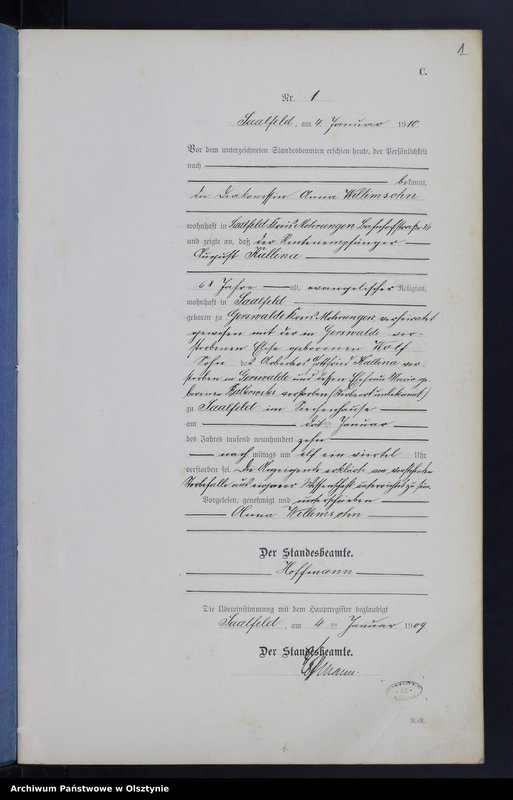 1
C.
Nr. 1
Saalfeld, am 4. Januar 1910.
Vor dem unterzeichneten Standesbeamten erschien heute, der Persönlichkeit
nach
bekannt,
die Diakonissin Anna Willimsohn
wohnhaft in Saalfeld Kreis Mohrungen Bahnhofstraße
und zeigte an, daß der Rentenempfänger
August Kallina
68 Jahre alt, evangelischer Religion,
wohnhaft in Saalfeld
geboren zu Gerswalde Kreis Mohrungen verheiratet
gewesen mit der in Gerswalde ver-
storbenen geborenen Wolf
Sohn des Arbeiters Gottfried Kallina ver-
storben in Gerswalde und dessen Ehefrau Maria ge-
borenen verstorben (Sterbeort unbekannt)
zu Saalfeld im Siechenhause
am Januar
des Jahres tausend neunhundert zehn
nach mittags um elf ein viertel Uhr
verstorben sei. Die Anzeigende erklärte, von vorstehendem
Sterbefalle aus eigener Wissenschaft unterrichtet zu sein.
Vorgelesen, genehmigt und unterschrieben
Anna Willimsohn
Der Standesbeamte.
Hoffmann
Die Übereinstimmung mit dem Hauptregister beglaubigt
Saalfeld, am 4 ten Januar 1909
Der Standesbeamte.
Hoffmann.
Archiwum Państwowe w Olsztynie